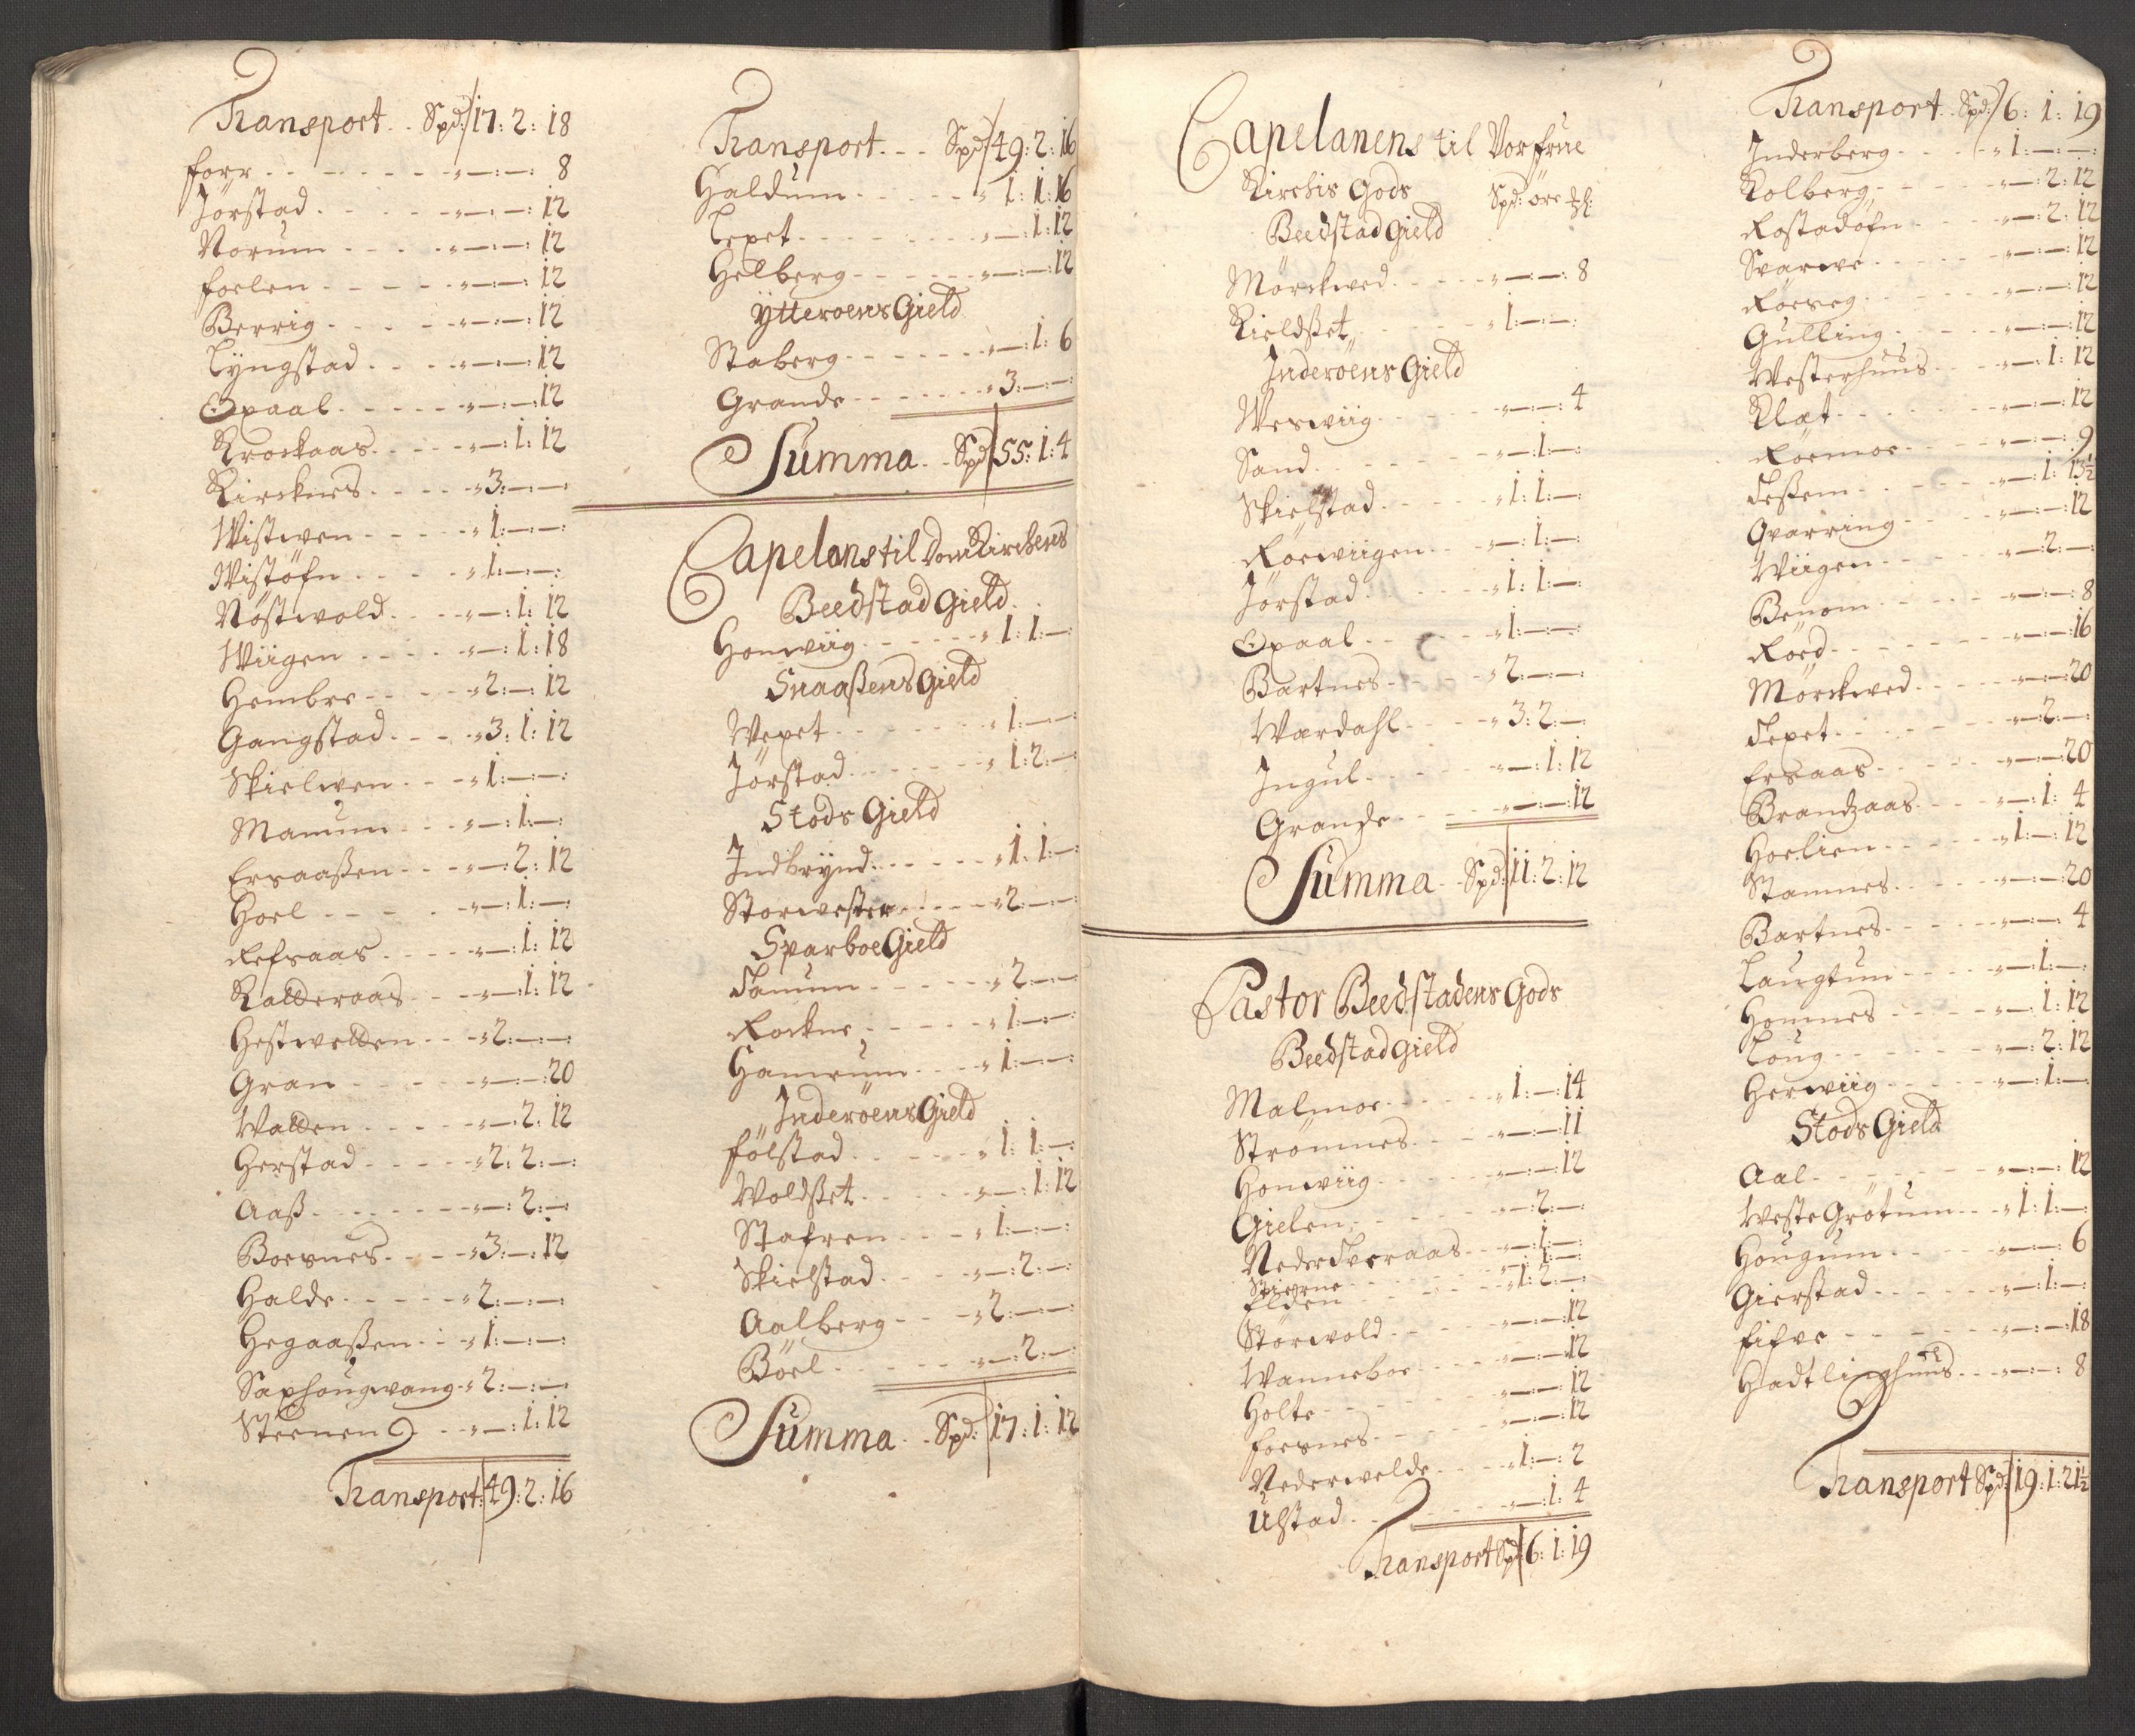 Transport. . Spd: 17: 2: 18
forr - - - - - - - „—:—: 8
Jörstad. - - - - „—:—: 12
Norum - - - - „—:—: 12
foelen - - - - „—:—: 12
Berrig - - - - „—:—: 12
Lÿngstad - - - „—:—: 12
Opaal - - - - - „—:—: 12
Krockaas - - - - „—: 1: 12
Kircknes - - - - „3:—:—
Wistwen - - - - „1:—:—
Wistöfn - - - - „1:—:—
Nöstwold - - - „—: 1: 12
Wiigen - - - - „—: 1: 18
Hembre - - - - „2:—: 12
Gangstad - - - „3: 1: 12
Skielwen - - - „1:—:—
Manum - - - „—: 1:—
Ersaaßen - - - „—: 2: 12
Hoel - - - - „—: 1:—
Refsaas - - - - „—: 1: 12
Kalderaas - - - „—: 1: 12
Hestwelden - - „2:—:—
Gran - - - - - „—:—: 20
Walden - - - - - „—: 2: 12
Herstad - - - - „2: 2:—
Aaß - - - - - - „—: 2:—
Boesnes - - - - „3:—: 12
Halde - - - - - „2:—:—
Hegaaßen - - - „1:—:—
Saxhougwang „2:—:—
Steenen - - „—: 1: 12
Transport: 49: 2: 16
Transport. . . Spd: 49: 2: 16
Haldum - - - - - „1: 1: 16
Lexet - - - - - - „—: 1: 12
Helberg - - - - - „—:—: 12
Ytteroens Gield
Staberg - - - - - „—: 1: 6
Grande - - - - - „3:—:—
Summa. . Spd: 55: 1: 4
Capelans til DomKirchens
Beedstad Gield
Honwiig - - - - - „1: 1:—
Snaaßens Gield
Wexet - - - - - - „1:—:—
Jörstad - - - - - „1: 2:—
Stods Gield
Indbrÿnd - - - - „1: 1:—
Storwester - - - - „2:—:—
Sparboe Gield
Tanum - - - - - „2:—:—
Rockne - - - - - „1:—:—
Hamrum - - - - „1:—:—
Inderöens Gield
fölstad - - - - - „1: 1:—
Woldset - - - - - „—: 1: 12
Stafren - - - - „1:—:—
Skielstad - - - - „—: 2:—
Aalberg - - - - „2:—:—
Böel - - - - - - „—: 2:—
Summa. . Spd: 17: 1: 12
Capelanens til Vor frue
Kirchis Gods Spd: öre
Beedstad Gield
Mörckwed - - - - „—:—: 8
Kieldset - - - - „1:—:—
Inderöens Gield
Weswiig - - - - „—:—: 4
Sand - - - - - - „—: 1:—
Skielstad - - - - „1: 1:—
Roewiigen - - - „—: 1:—
Jörstad - - - - - „1: 1:—
Opaal - - - - - „1:—:—
Bartnes - - - - „2:—:—
Wærdahl - - - - „3: 2:—
Ingul - - - - - „—: 1: 12
Grande - - - - „—:—: 12
Summa. . Spd: 11: 2: 12
Pastor Beedstadens Gods
Beedstad gield
Malmoe - - - - „1:—: 14
Strömnes - - - „—:—: 11
Honwiig - - - - „—:—: 12
Gielen - - - - - „—: 2:—
Neder Tveraas - - „—: 1:—
Stierne - - - - „—: 1:—
Elden - - - - - „1: 2:—
Störwold - - - - „—:—: 12
Wanneboe - - - „—:—: 12
Holte - - - - - „—:—: 12
foesnes - - - - „—:—: 12
Nederwelde - - - „1:—: 2
Ulstad - - - - „—: 1: 4
Transport Spd: 6: 1: 19
Transport. . Spd: 6: 1: 19
Inderberg - - - - „1:—:—
Kolberg - - - - - „—: 2: 12
Rostadöfn - - - „—: 2: 12
Svarwe - - - - - „—:—: 12
Röeseg - - - - - „—:—: 12
Gulling - - - - - „—:—: 12
Westerhuus - - - „—: 1: 12
Klæt - - - - - - „—:—: 12
Röemoe - - - - „—:—: 9
Teßem - - - - - „—: 1: 13½
Qvarring - - - - „—:—: 12
Wiigen - - - - - „—: 2:—
Benom - - - - - „—:—: 8
Röed - - - - - - „—:—: 16
Mörckwed - - - - „—:—: 20
Texet - - - - - „—: 2:—
Ersaas - - - - - „—:—: 20
Brandzaas - - - „—: 1: 4
Hoelien - - - - „1:—: 12
Stamnes - - - - „—:—: 20
Bartnes - - - - „—:—: 4
Langtun - - - - „—: 1:—
Homnes - - - - „—: 1: 12
Loug - - - - - „—: 2: 12
Herwiig - - - - „—: 1:—
Stods Gield
Aal - - - - - - „—:—: 12
Weste Grötum - - „1: 1:—
Hougum - - - - „—:—: 6
Gierstad - - - - „—: 1:—
fifve - - - - - „—:—: 18
Hadtlinghuus - - „—:—: 8
Transport Spd: 19: 1: 21½